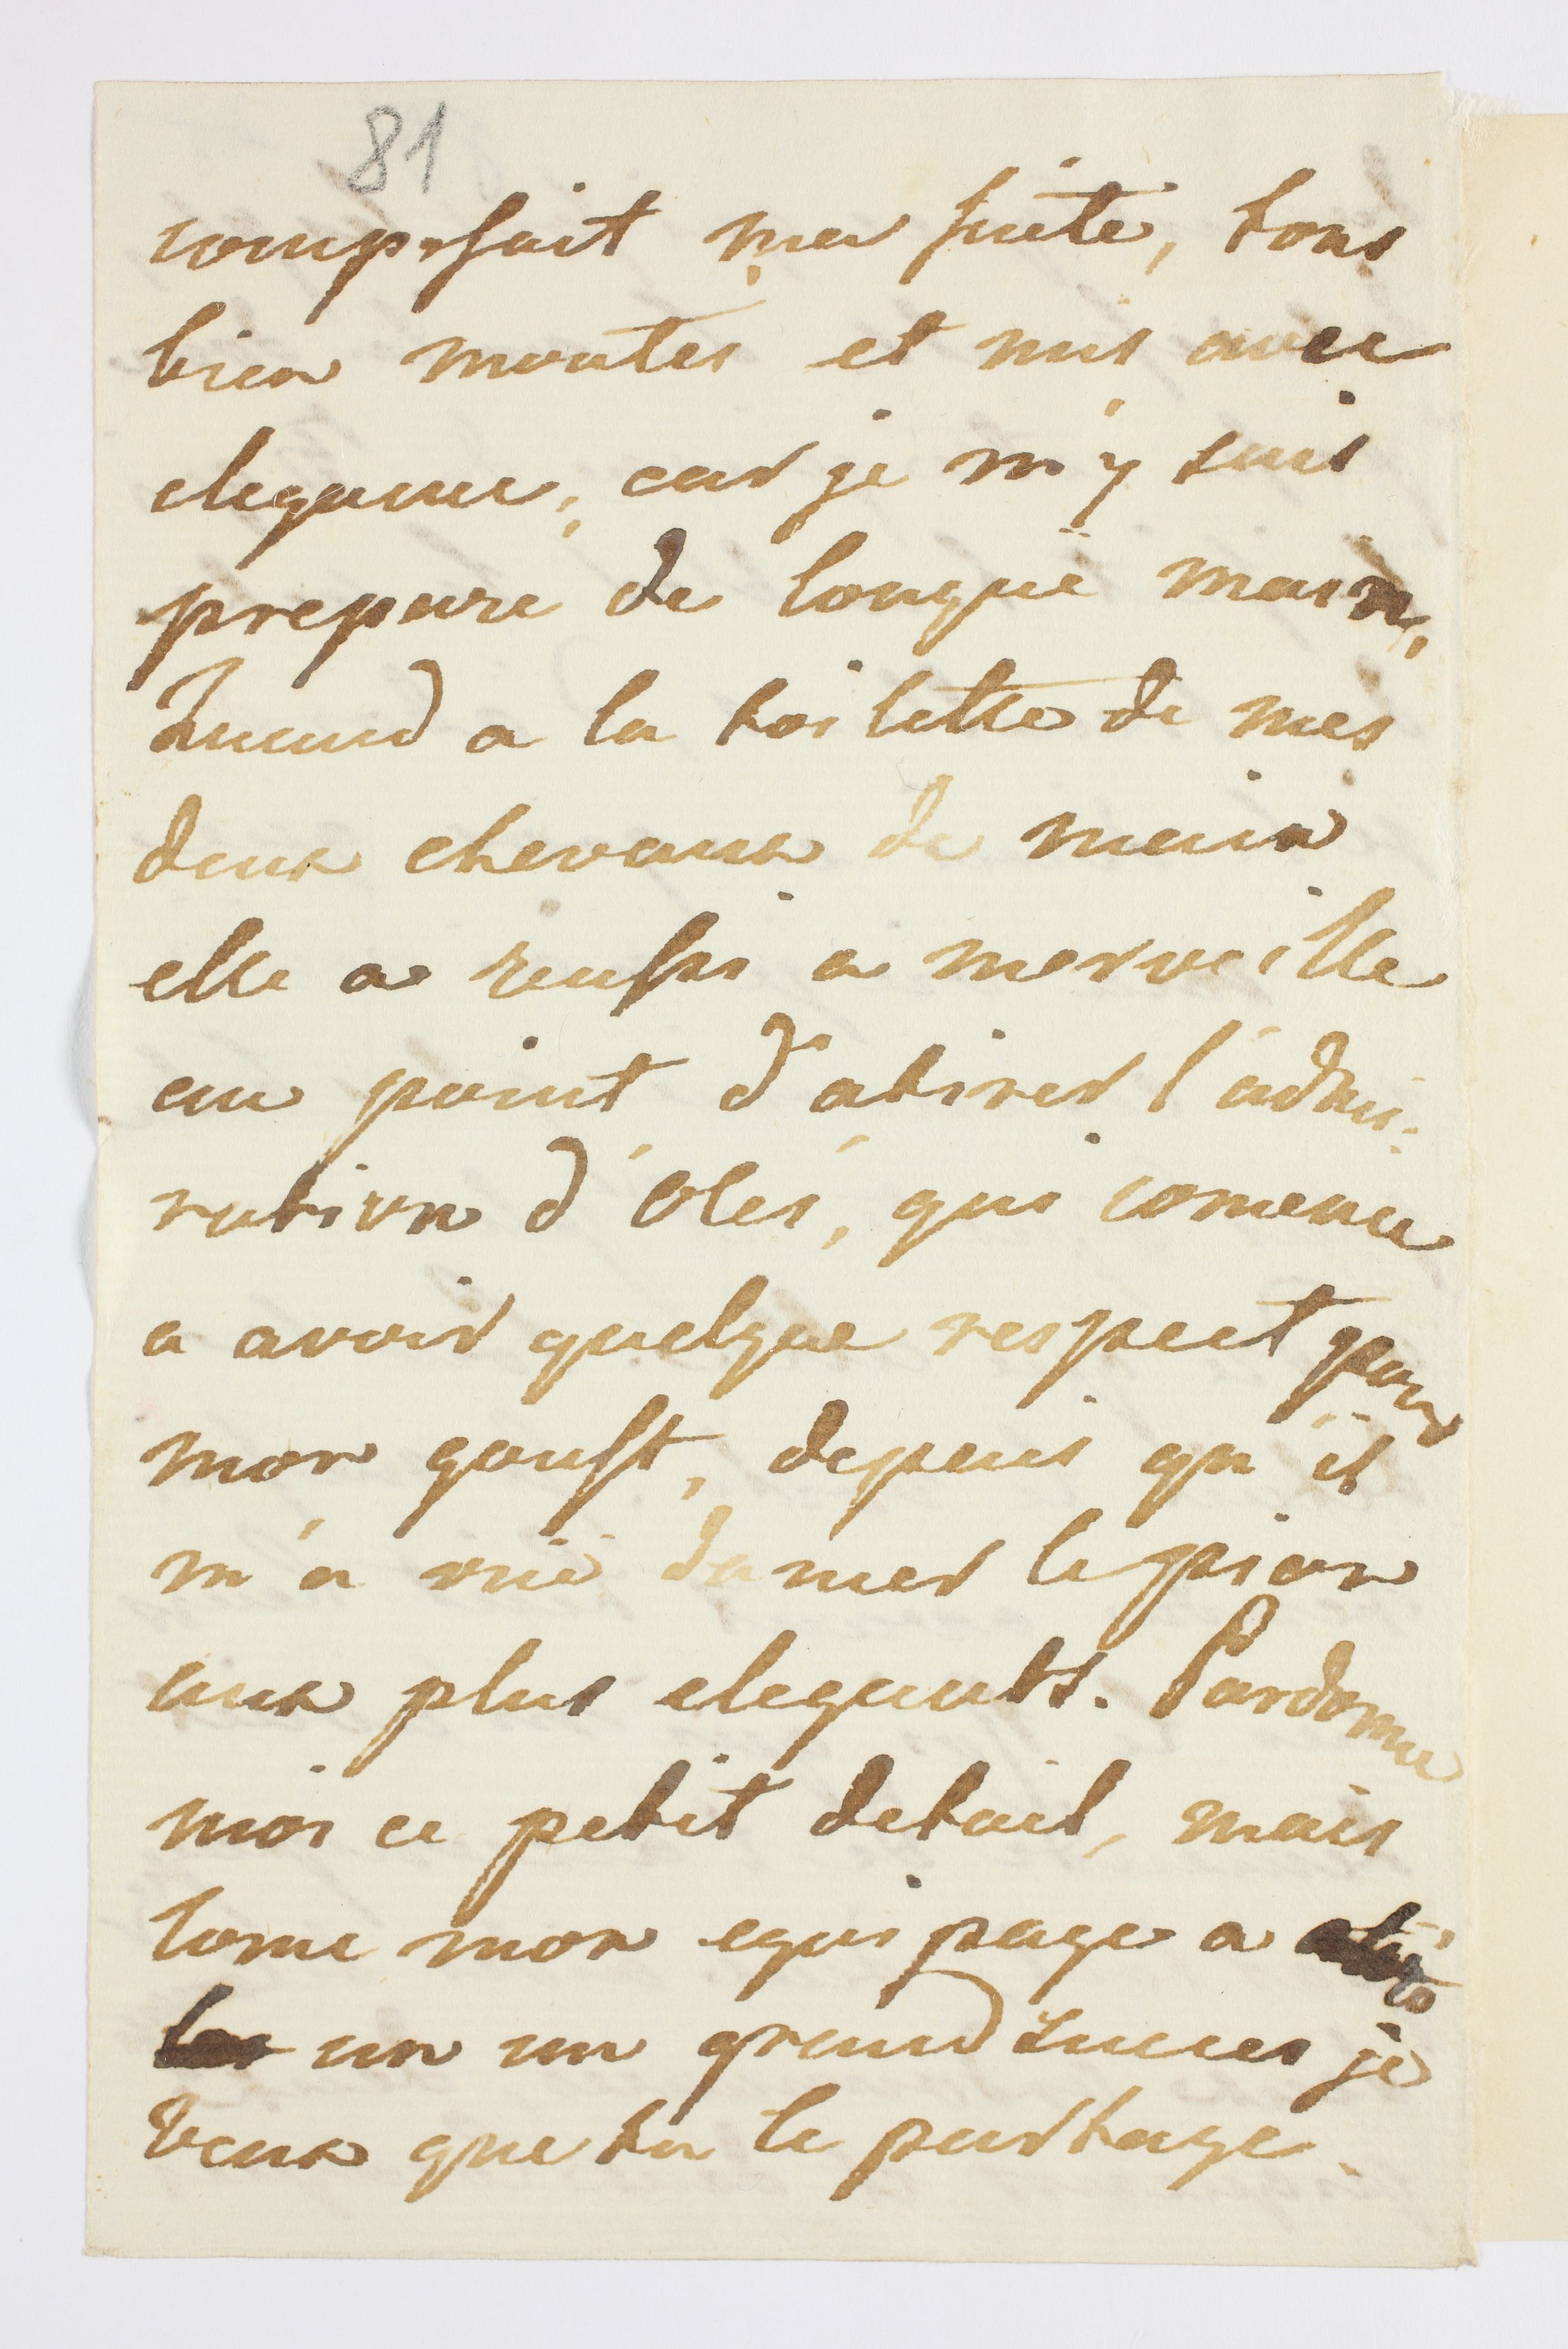 81
comp.sait ma suite, tous
bien montés et mis avec
elegance, car je m'y suis
prepare de longue main,
Quand a la toilette de mes
deux chevaux de main
elle a reussi a merveille
au point d'atirer l'admi:
ration d'Oles, qui comence
a avoir quelque respect pour
mon goust, depuis qu'il
m'a vuë damer le pion
aux plus elegants. Pardonne
moi ce petit detail, mais
come mon equipage a
un un grand succes je
veux que tu le partage.